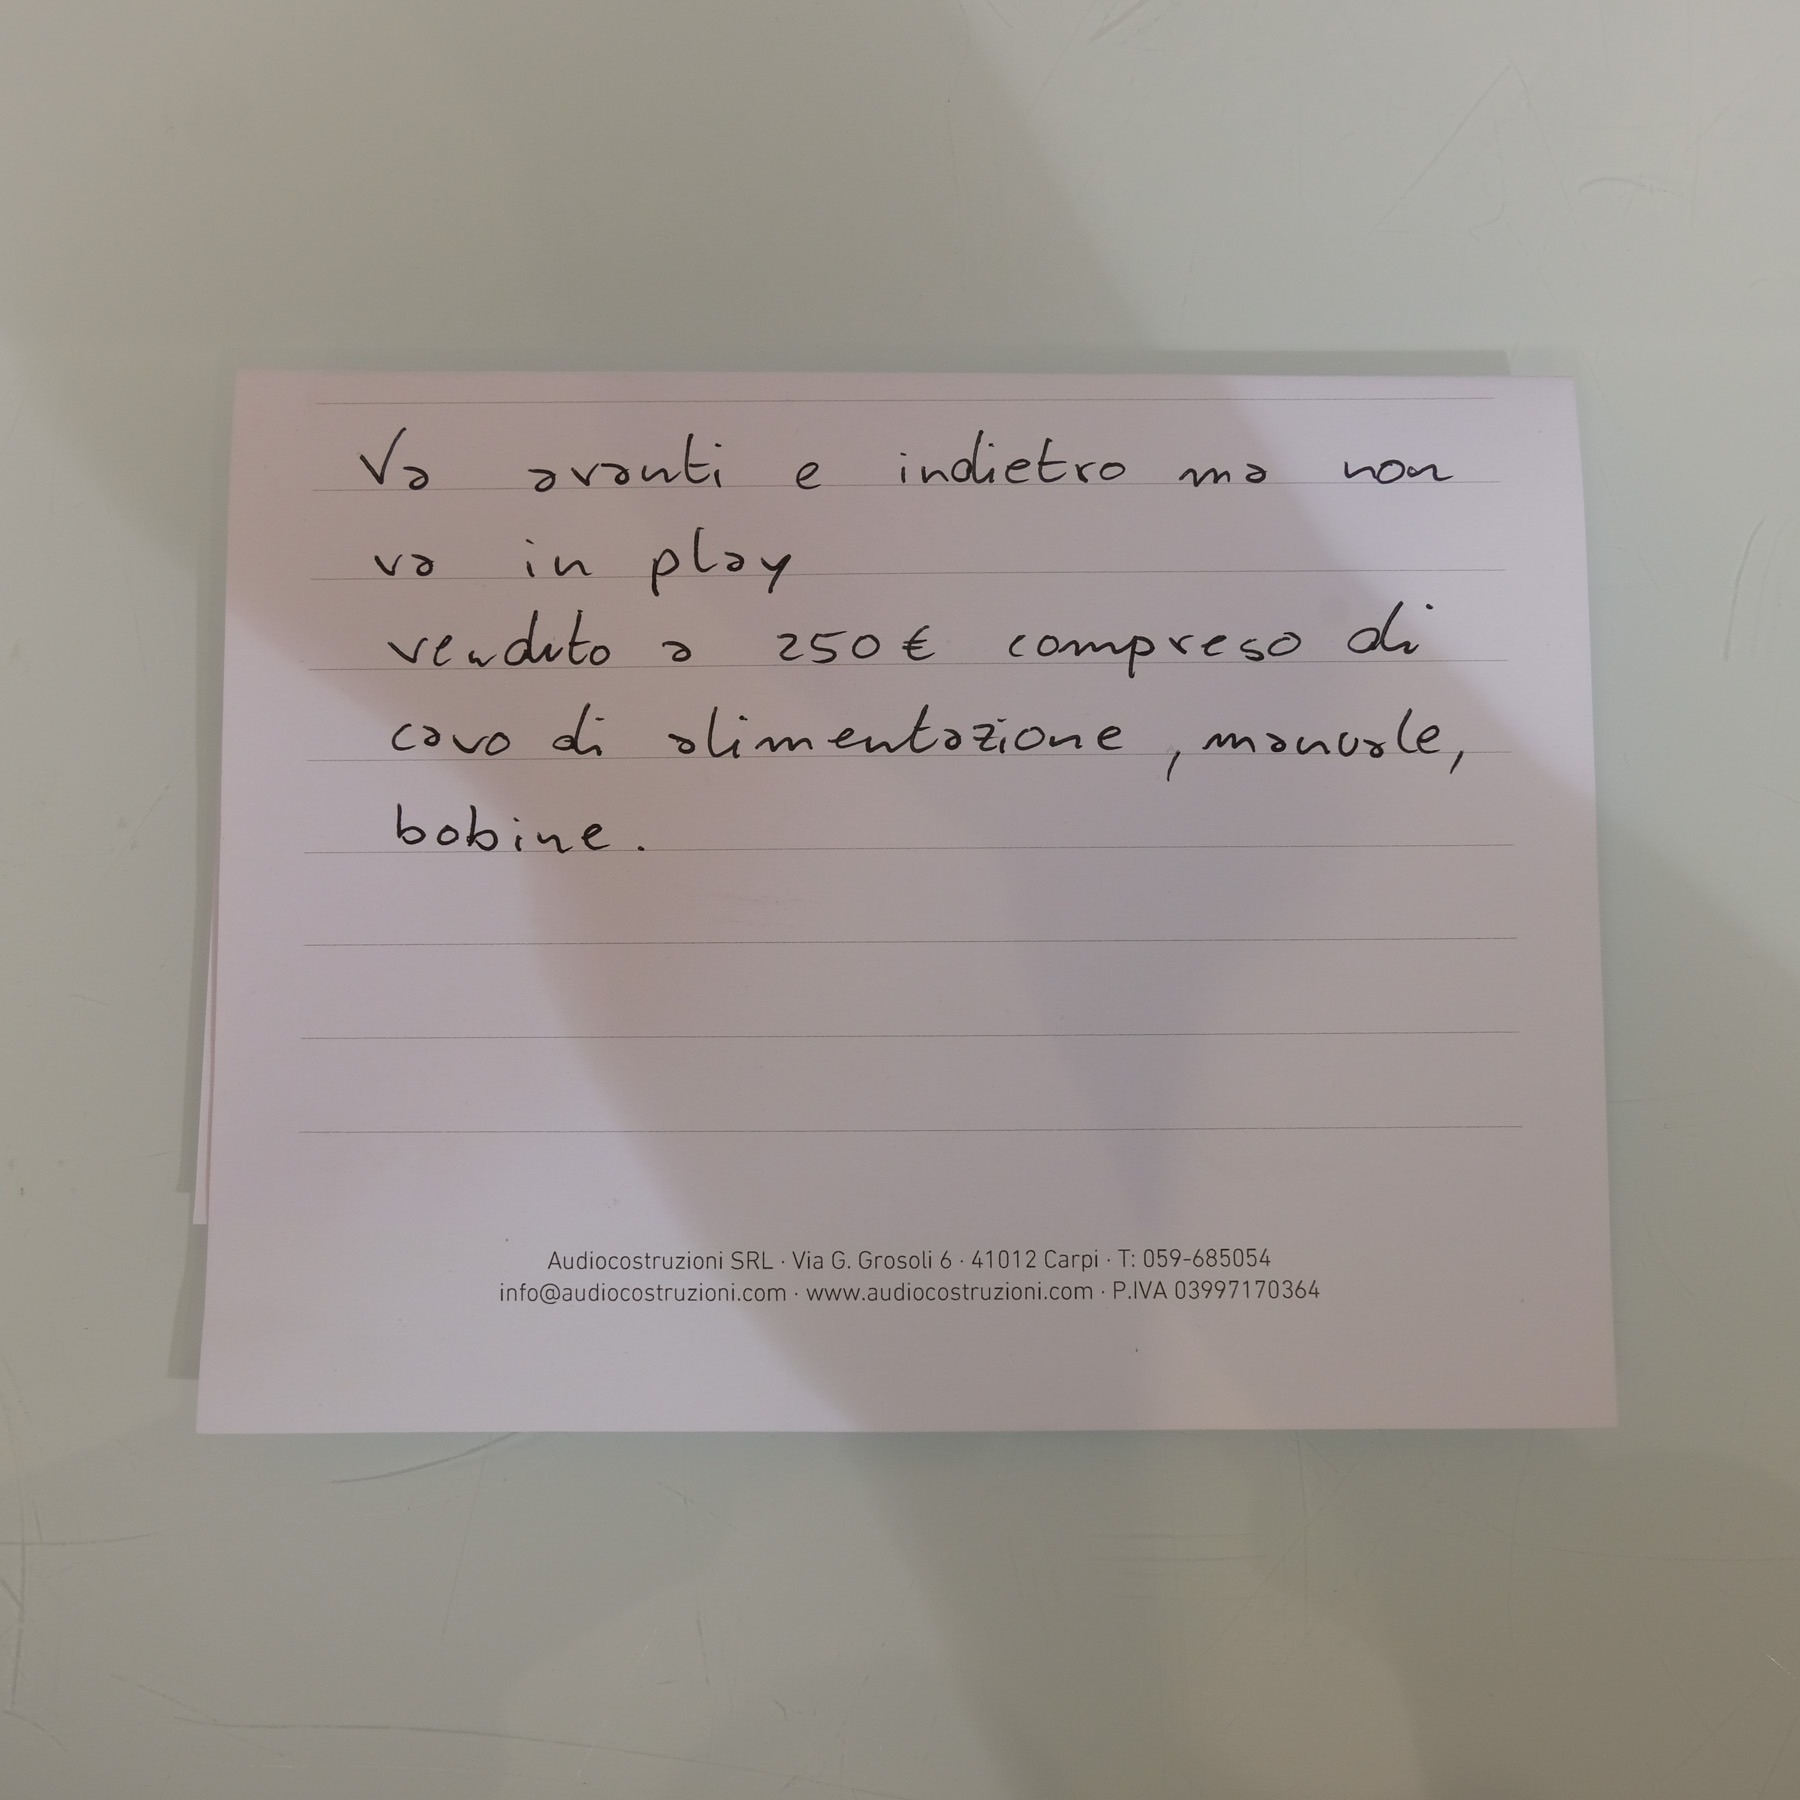 Va avanti e indietro ma non
va in play
venduto a 250€ compreso di
cavo di alimentazione, manuale,
bobine.
Audiocostruzioni SRL · Via G. Grosoli 6 · 41012 Carpi · T: 059-685054
info@audiocostruzioni.com · www.audiocostruzioni.com · P.IVA 03997170364